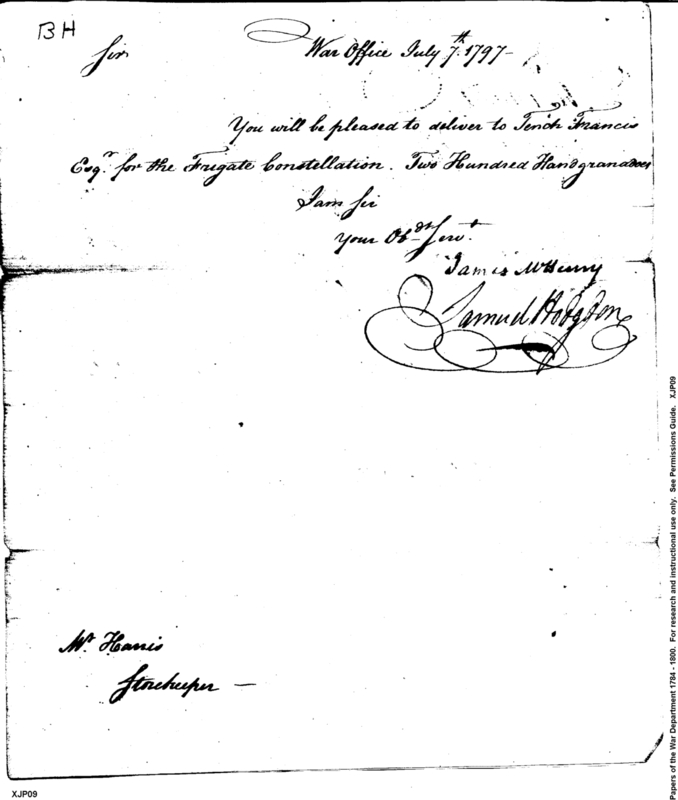 BH
War Office July 7th. 1797-
Sir
You will be pleased to deliver to Tench Francis
Esqr. for the Frigate Constellation. Two Hundred Handgranadoes
I am Sir
Your Obdt. Servt.
James McHenry
Samuel Hodgdon
Mr. Harris
Storekeeper —
XJP09
Papers of the War Department 1784 - 1800. For research and instructional use only. See Permissions Guide. XJP09